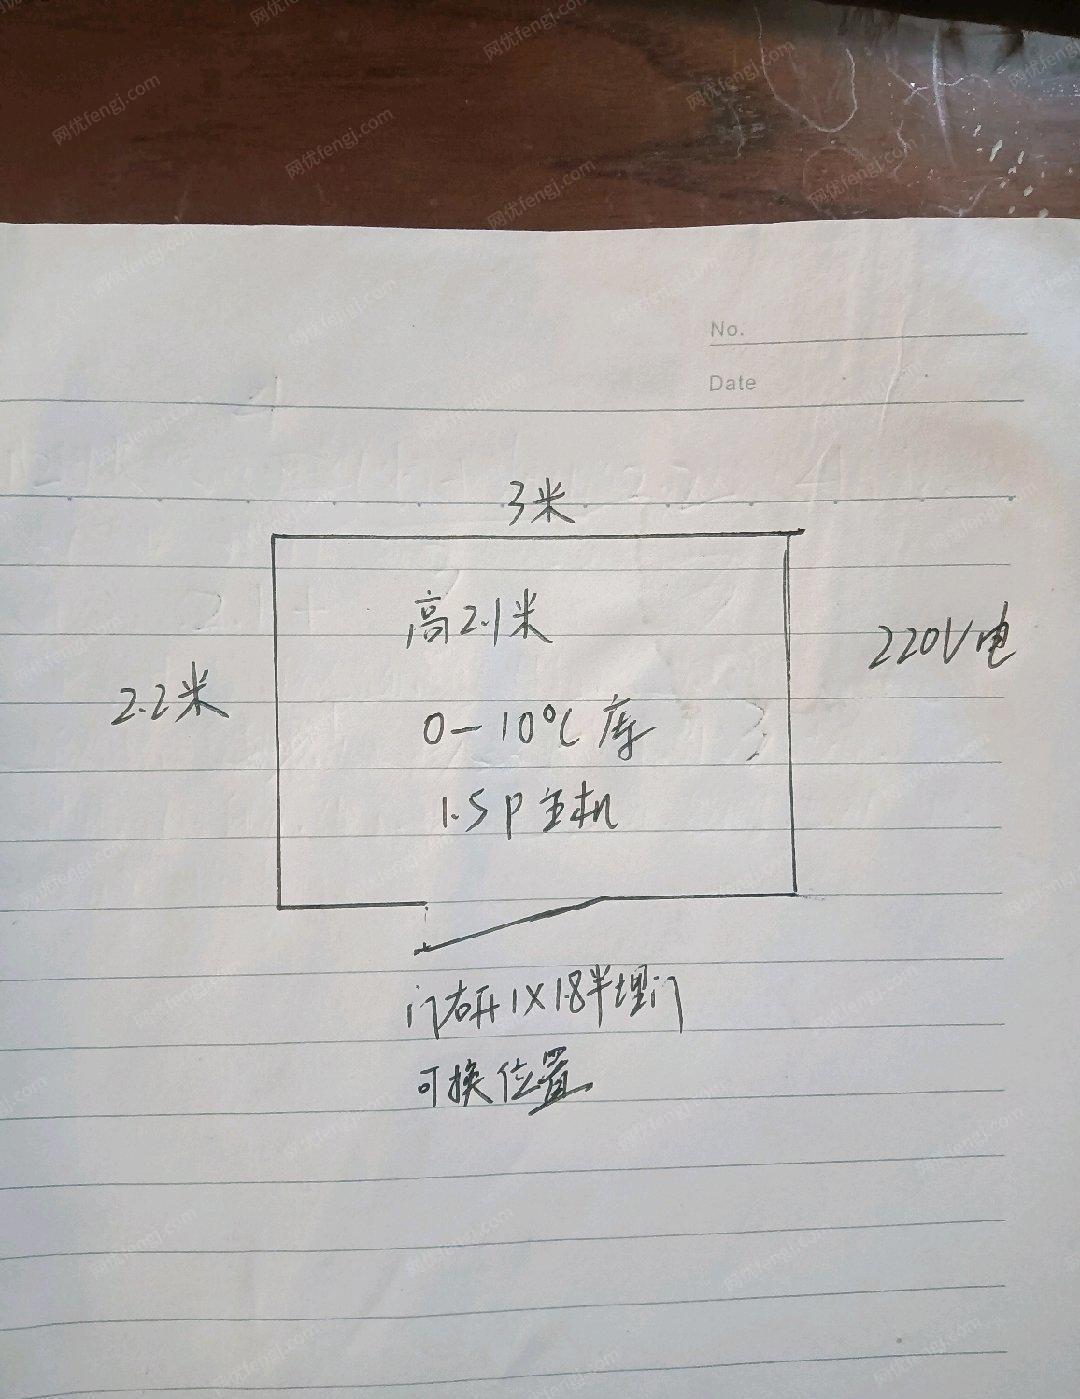 No.
Date
3米
高2.1米
220V电
2.2米
0-10℃库
1.5P主机
门右开1X1.8半埋门
可换位置
网优fengj.com